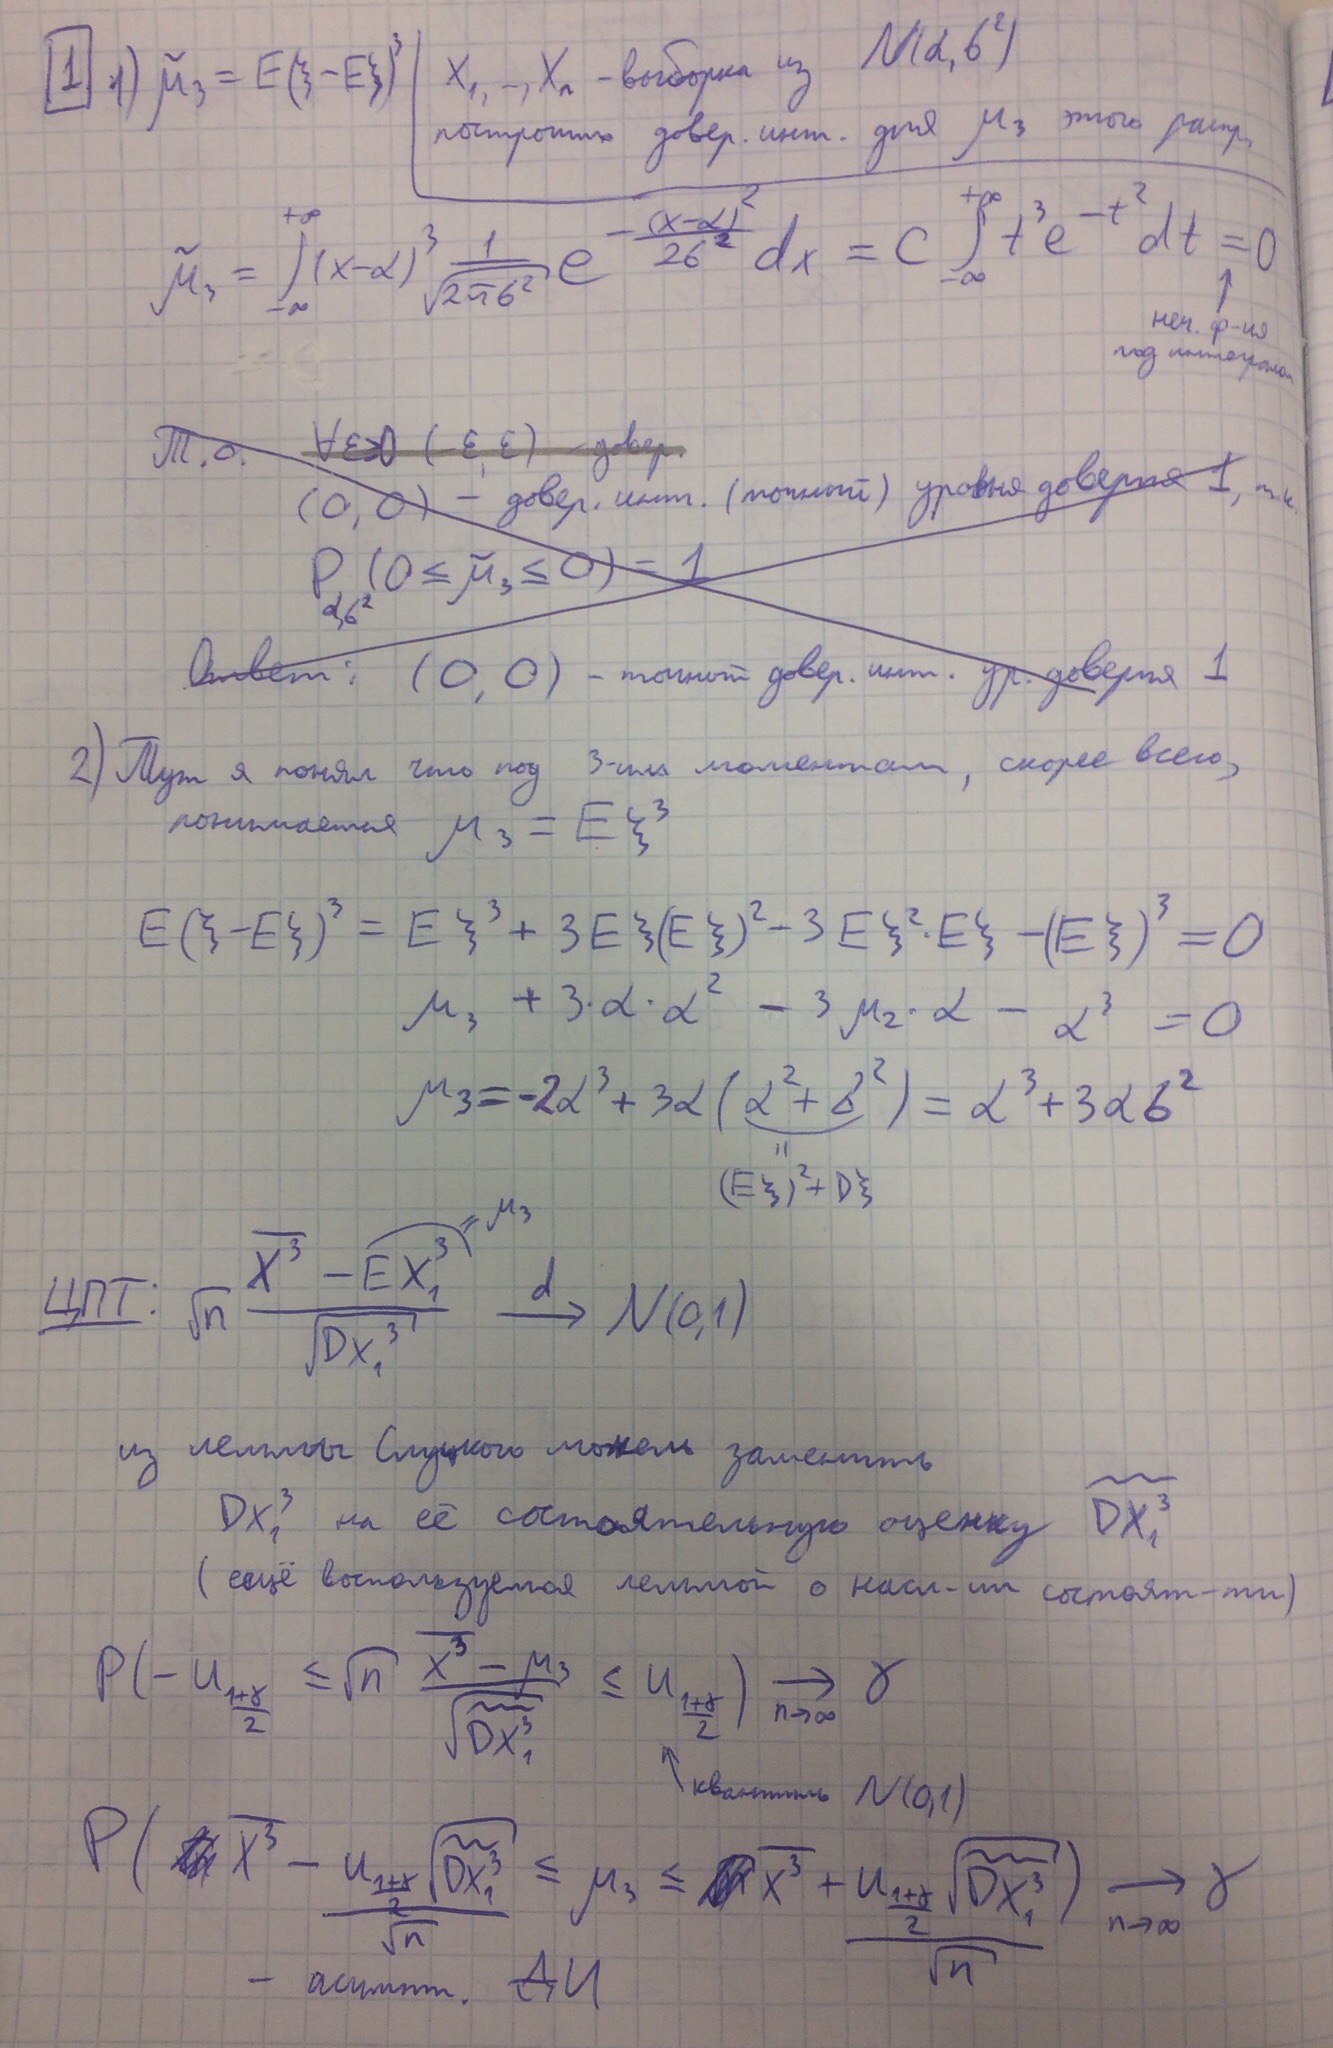 1 1) μ̃₃ = E(ξ-Eξ)³ | X₁, .., Xₙ - выборка из N(α, σ²)
построить довер. инт. для μ₃ этого распр.
μ̃₃ = ∫_{-∞}^{+∞} (x-α)³ 1/√(2πσ²) e^{-(x-α)²/2σ²} dx = C ∫_{-∞}^{+∞} t³e^{-t²}dt = 0
неч. ф-ия
под интегралом
Т.о. ∀ε>0 (-ε, ε) - довер.
(0, 0) - довер. инт. (точный) уровня доверия 1, т.к.
P_{α,σ²}(0 ≤ μ̃₃ ≤ 0) = 1
Ответ: (0, 0) - точный довер. инт. ур. доверия 1
2) Тут я понял что под 3-им моментом, скорее всего,
понимается μ₃ = Eξ³
E(ξ-Eξ)³ = Eξ³ + 3Eξ(Eξ)² - 3Eξ²·Eξ - (Eξ)³ = 0
μ₃ + 3·α·α² - 3μ₂·α - α³ = 0
μ₃ = -2α³ + 3α(α²+σ²) = α³ + 3ασ²
=
(Eξ)² + Dξ
ЦПТ: √n (X̅³ - EX₁³)/√(DX₁³) →^d N(0,1)
= μ₃
из леммы Слуцкого можем заменить
DX₁³ на её состоятельную оценку D̃X₁³
(ещё воспользуемся леммой о насл-ии состоят-ти)
P(-u_{(1+γ)/2} ≤ √n (X̅³ - μ₃)/√(D̃X₁³) ≤ u_{(1+γ)/2}) →_{n→∞} γ
квантиль N(0,1)
P(X̅³ - u_{(1+γ)/2}√(D̃X₁³)/√n ≤ μ₃ ≤ X̅³ + u_{(1+γ)/2}√(D̃X₁³)/√n) →_{n→∞} γ
- асимпт. ДИ